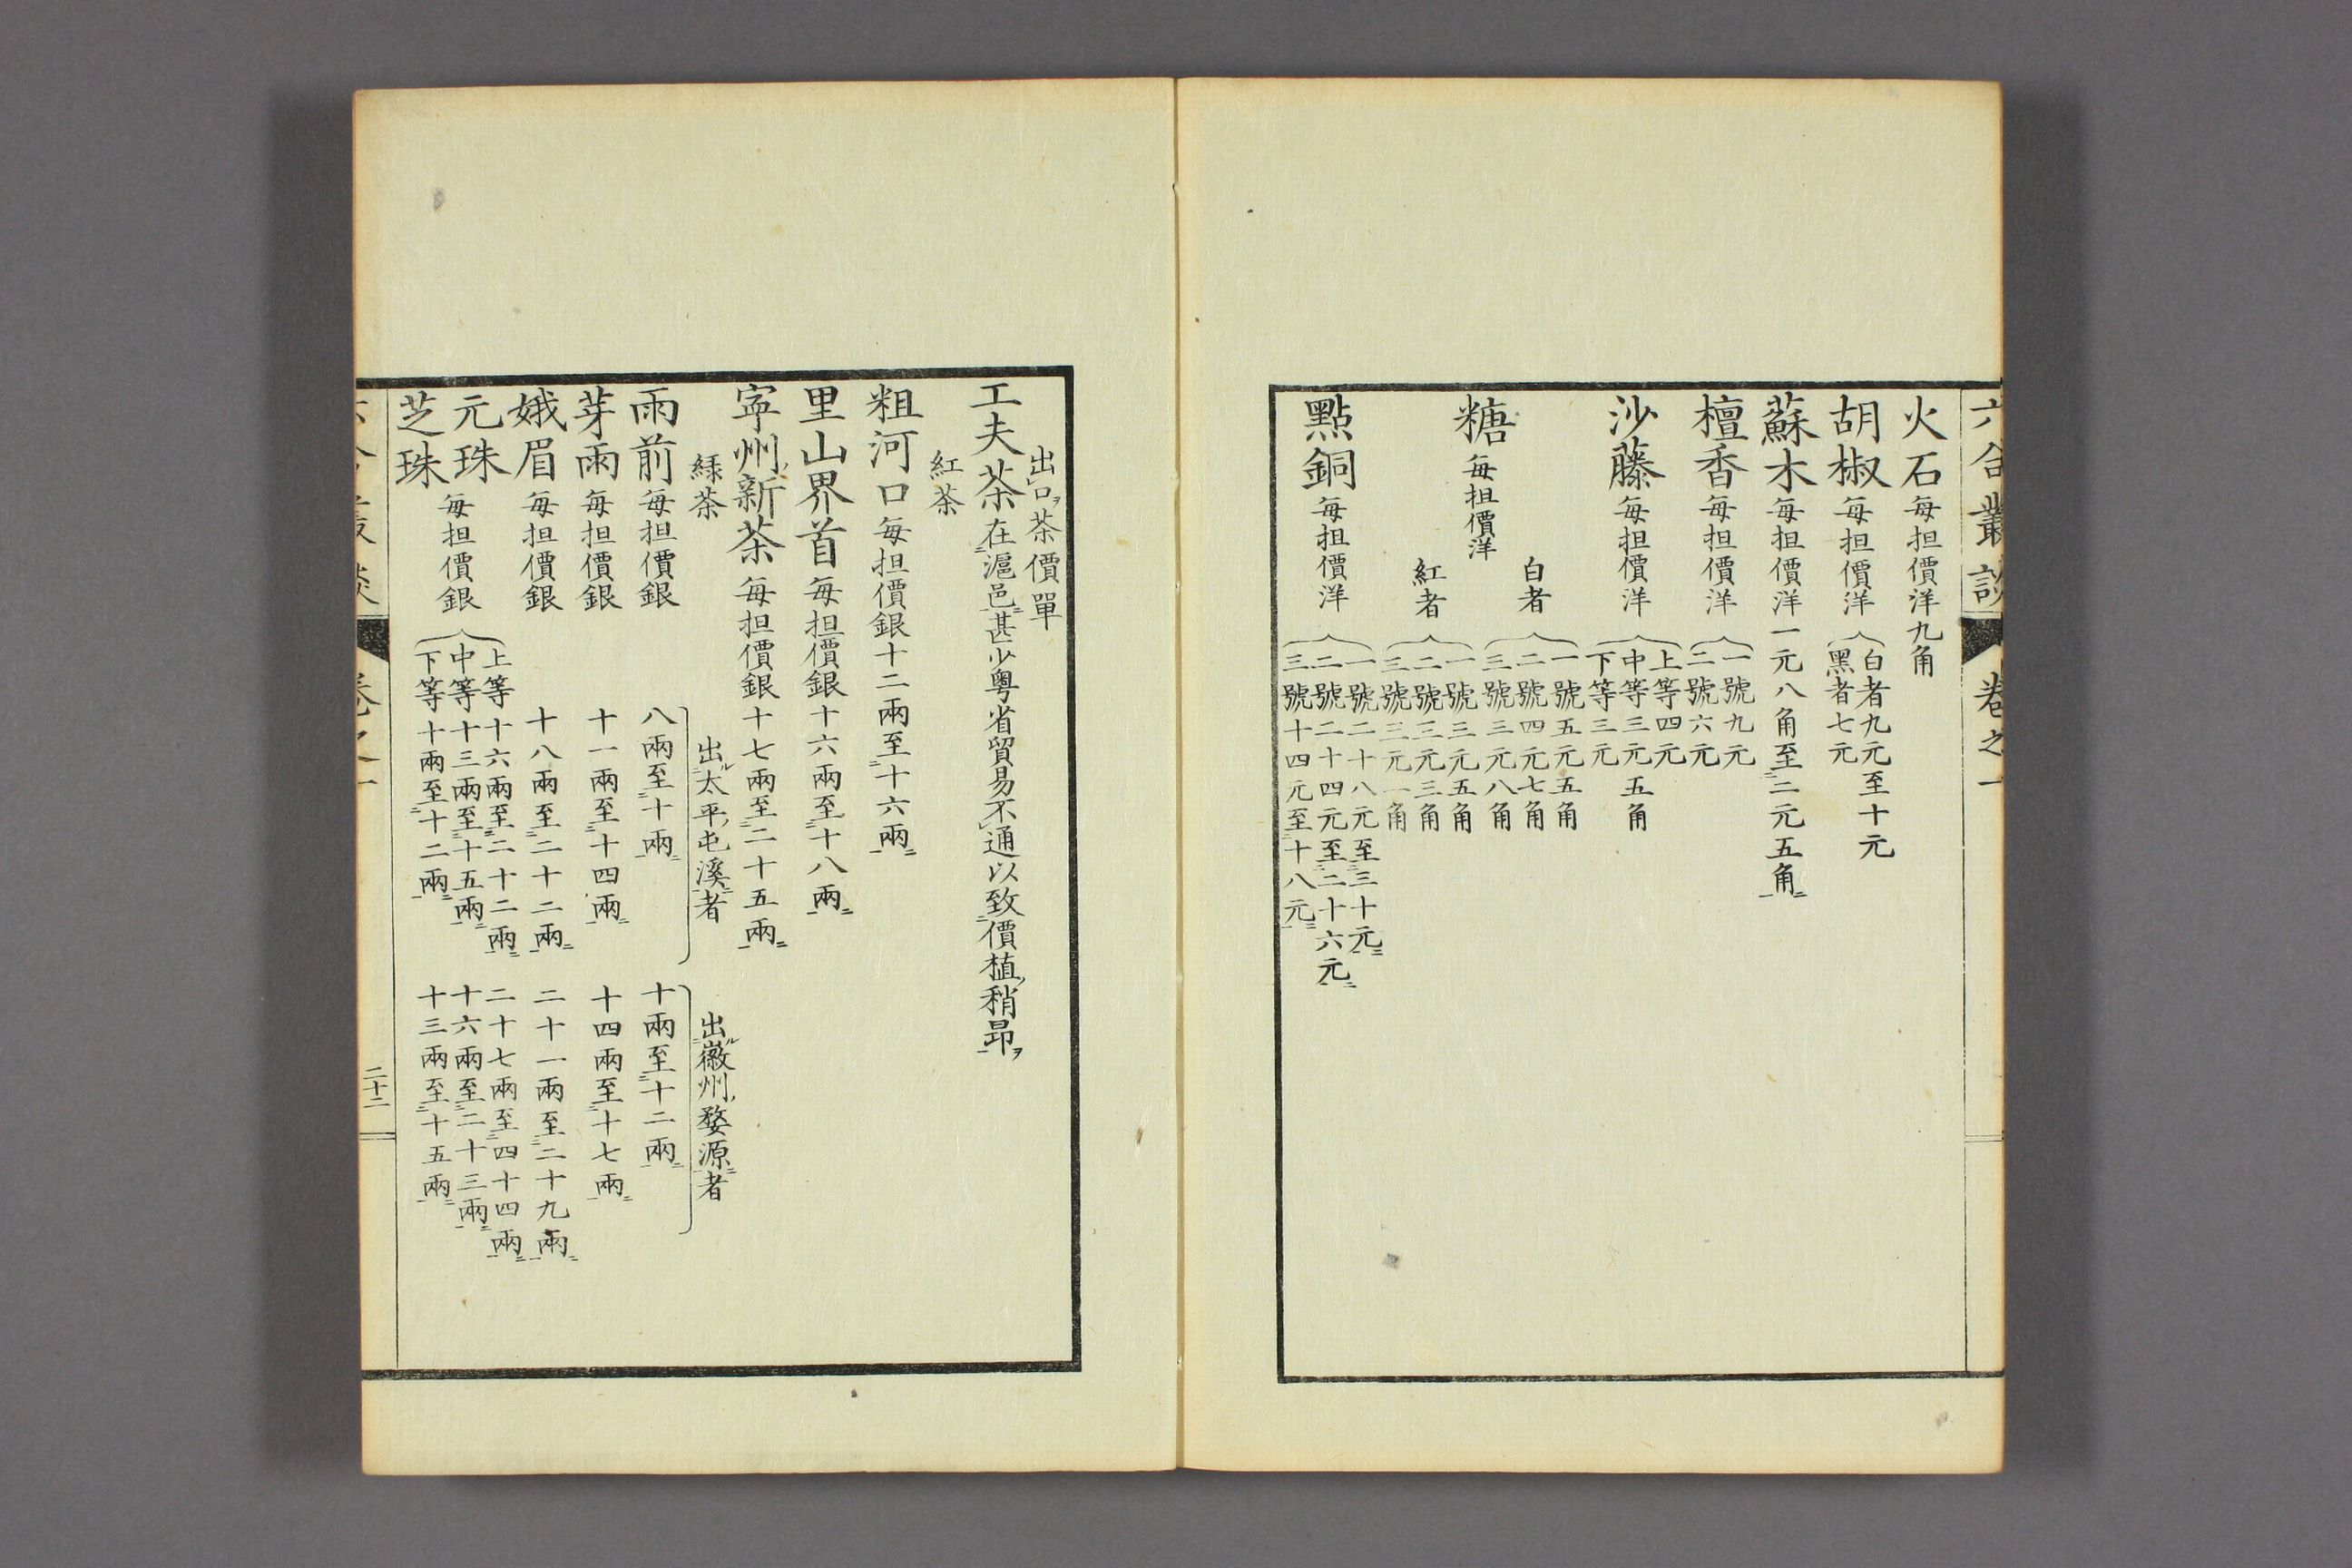 六合叢談
卷之一
火石每担價洋九角
胡椒每担價洋
白者九元至十元
黑者七元
蘇木每担價洋一元八角至二元五角
檀香每担價洋
一號九元
二號六元
沙藤每担價洋
上等四元
中等三元五角
下等三元
糖每担價洋
白者
一號五元五角
二號四元七角
三號三元八角
紅者
一號三元五角
二號三元三角
三號三元一角
點銅每担價洋
一號二十八元至三十元
二號二十四元至二十六元
三號十四元至十八元
出口茶價單
工夫茶在滬邑甚少粵省貿易不通以致價植稍昂
紅茶
粗河口每担價銀十二兩至十六兩
里山界首每担價銀十六兩至十八兩
寧州新茶每担價銀十七兩至二十五兩
綠茶
出太平屯溪者
出徽州婺源者
雨前每担價銀 八兩至十兩 十兩至十二兩
芽雨每担價銀 十一兩至十四兩 十四兩至十七兩
娥眉每担價銀 十八兩至二十二兩 二十一兩至二十九兩
元珠
芝珠
每担價銀
上等十六兩至二十二兩 二十七兩至四十四兩
中等十三兩至十五兩 十六兩至二十三兩
下等十兩至十二兩 十三兩至十五兩
二十二